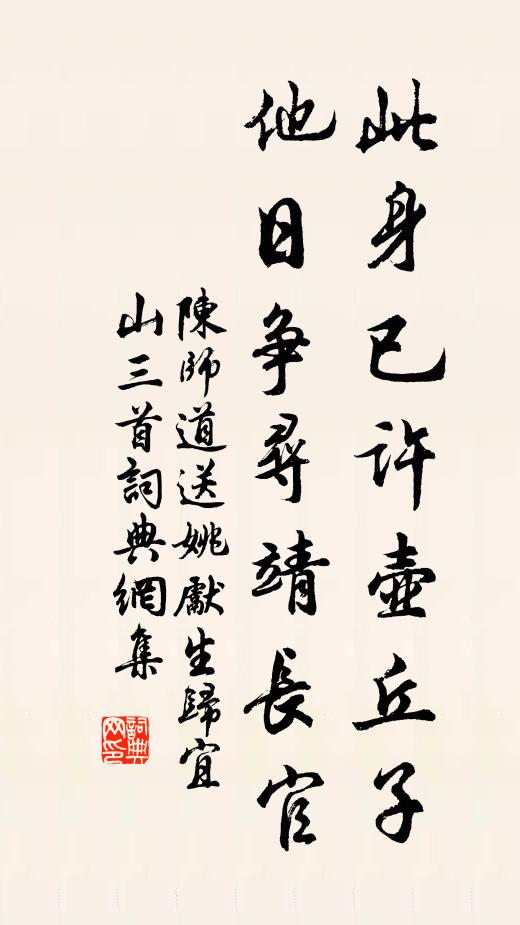 此身已許壺丘子
他日争尋靖長官
陳師道送姚獻生歸宜
山三首詞典網集
詞典网印